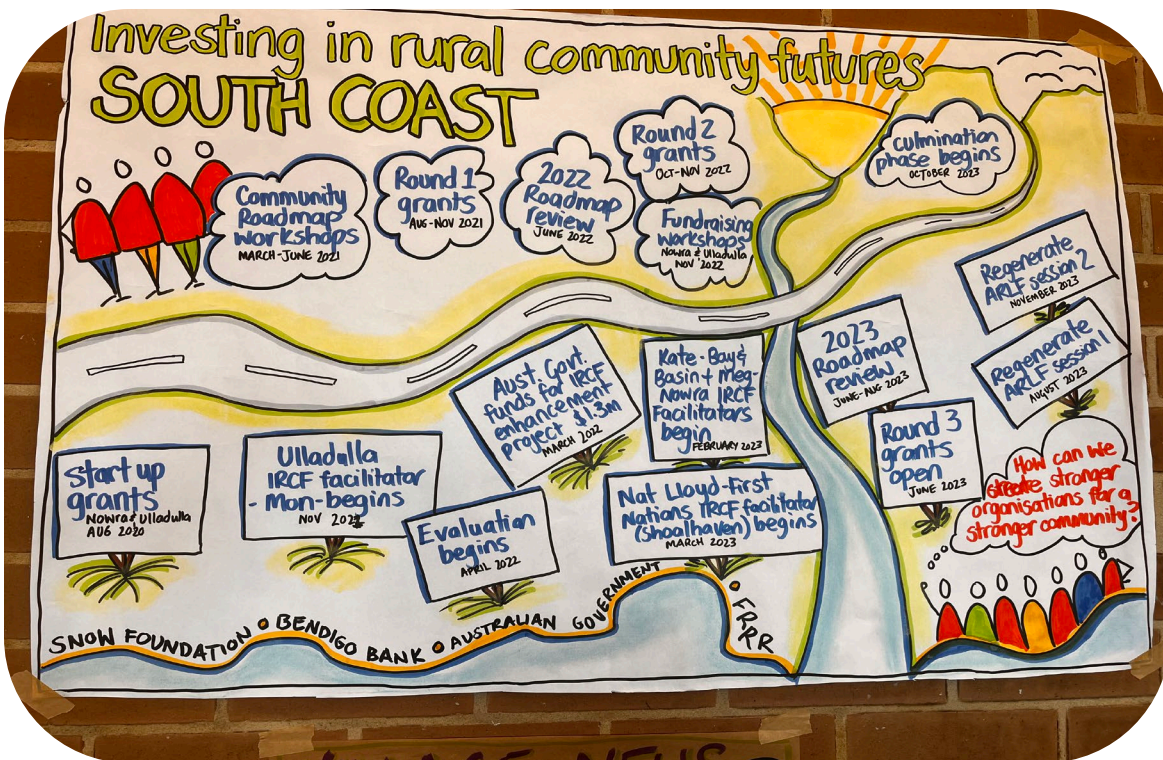 Investing in rural community futures
SOUTH COAST
Community
Roadmap
workshops
MARCH-JUNE 2021
Round 1
grants
AUG-NOV 2021
2022
Roadmap
review
JUNE 2022
Round 2
grants
OCT-NOV 2022
Fundraising
workshops
Nowra & Ulladulla
NOV '2022
culmination
phase begins
OCTOBER 2023
Regenerate
ARLF session 2
NOVEMBER 2023
Regenerate
ARLF session 1
AUGUST 2023
2023
Roadmap
review
JUNE-AUG 2023
Aust. Govt.
funds for IRCF
enhancement
project $1.3m
MARCH 2022
Kate-Bay &
Basin + Meg-
Nowra IRCF
Facilitators
begin
FEBRUARY 2023
Round 3
grants
open
JUNE 2023
Start up
grants
Nowra & Ulladulla
AUG 2020
Ulladulla
IRCF facilitator
- Mon-begins
NOV
Evaluation
begins
APRIL 2022
Nat Lloyd-First
Nations IRCF facilitator
(Shoalhaven) begins
MARCH 2023
How can we
stronger
organisations for a
stronger community?
SNOW FOUNDATION • BENDIGO BANK • AUSTRALIAN GOVERNMENT • FRRR